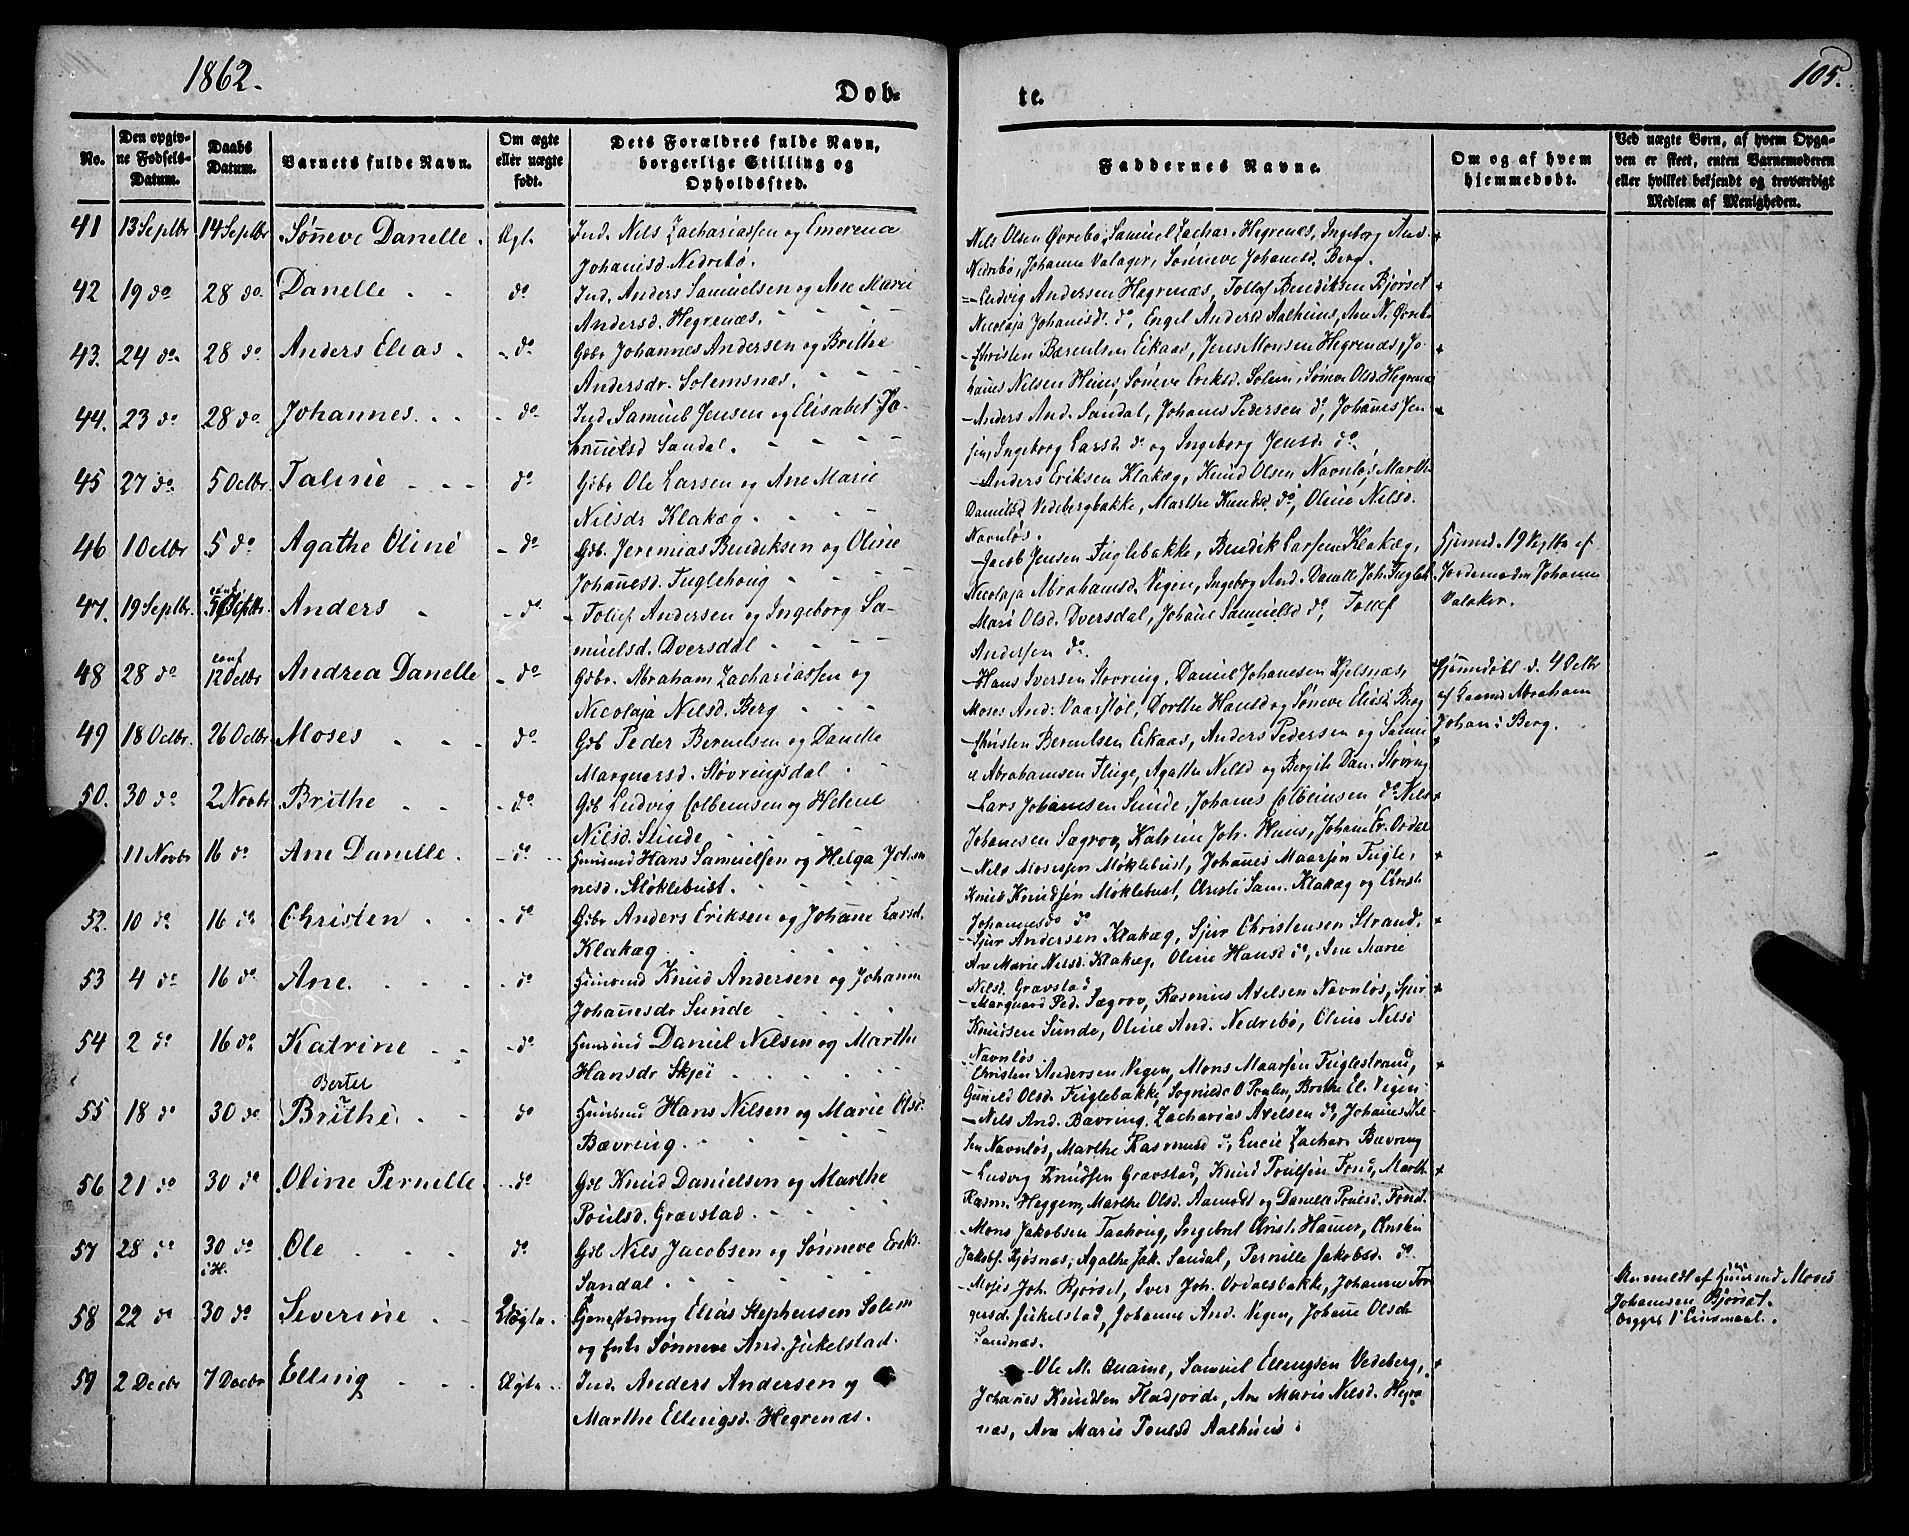 1862.
Døb-
te.
105.
No.
Den opgiv-
ne Fødsels-
Datum.
Daabs
Datum.
Barnets fulde Navn.
Om ægte
eller uægte
født.
Dets Forældres fulde Navn,
borgerlige Stilling og
Opholdssted.
Faddernes Navne.
Om og af hvem
hjemmedøbt.
Ved uægte Børn, af hvem Opga-
ven er skeet, enten Barnemoderen
eller hvilket bekjendt og troværdigt
Medlem af Menigheden.
41 13 Septbr 14 Septbr Sønneve Danelle. Ægt. Ind. Nils Zachariassen og Emerena
Johanisd Nedrebø.
Nils Olsen Øvrebø, Samuel Zachar. Hegrenæs, Ingeborg And.
Nedrebø, Johanne Valager, Sønneve Johanesd. Berg.
42 19 do 28 do. Danelle do Ind. Anders Samuelsen og Ane Marie
Andersd. Hegrenæs.
Ludvig Andersen Hegrenæs, Tollef Bendiksen Bjørset
Nicolaja Johanisd. do, Engel Andersd Aalhuus, Ane N. Øvreb.
43. 24 do 28 do Anders Elias. do Gbr Johannes Andersen og Brithe
Andersdr. Solemsnæs.
Christen Bærentsen Eikaas, Jens Monsen Hegrenæs, Jo-
hanes Nilsen Huus, Søneve Eriksd. Solem, Søneve Olsd. Hegrenæ
44. 23 do 28 do Johannes. do Ind. Samuel Jensen og Elisabet Jo-
hanisd Sandal.
Anders And. Sandal, Johanes Pedersen do, Johanes Jen
sen, Ingeborg Larsd. do og Ingeborg Jensd. do
45 27 do 5 Octbr. Taline do Gbr Ole Larsen og Ane Marie
Nilsdr Klakæg.
Anders Eriksen Klakæg, Knud Olsen Navnløs, Marth
Danielsd Vedebergbakke, Marthe Knudsd do, Oline Nilsd.
Navnløs.
46 1 Octbr 5 do Agathe Oline do Gbr. Jeremias Bendiksen og Oline
Johanesd. Fuglehoug
Jacob Jensen Fuglebakke, Bendik Larsen Klakæg,
Nicolaja Abrahamsd. Vigen, Ingeborg And. Danelle Joh. Fugleh
Hjemmed. 19 Septbr af
Jordemoder Johanne
Valaker.
47. 19 Septbr. conf Anders do Tollef Andersen og Ingeborg Sa-
muelsd. Dversdal
Mari Olsd. Dversdal, Johane Samuelsd do, Tollef
Andersen do.
48 28 do conf 12 Octbr Andrea Danelle do Gbr. Abraham Zachariassen og
Nicolaja Nilsd. Berg
Hans Iversen Støvring, Daniel Johanesen Kjelsnæs,
Moses And. Vaarstøl, Dorthe Hansd og Søneve Eliasd. Berg
Hjemmedøbt d. 4 Octbr
af Abraham
Johan: Berg.
49 18 Octbr. 26 Octbr. Moses do Gbr Peder Berentsen og Danelle
Marquarsd. Støvringsdal
Christen Berentsen Eikaas, Anders Pedersen og Samu
el Abrahamsen Fluge, Agathe Nilsd og Bergite Dan. Støvring
50. 30 do 2 Novbr Brithe do Gbr Ludvig Colbensen og Helene
Nilsd. Sunde
Lars Johanesen Sunde, Johanes Colbeinsen do Nils
Johanesen Sægrov, Katrine Joh. Huus, Johane Er. Ordal
11 Novbr 16 do Ane Danelle. do Huusmd Hans Samuelsen og Helga Johan
nesd. Møklebust.
Nils Mosessen Møklebust, Johanes Maarsøn Fugle,
Knud Knudsen Møklebust, Christi Sam. Klakæg og Christi
Johannesd do
52. 10 do 16 do Christen do Gbr Anders Eriksen og Johane Larsd.
Klakæg
Sjur Andersen Klakæg, Sjur Christensen Strand,
Ane Marie Nilsd. Klakæg, Oline Hansd do, Ane Marie
Nilsd. Gravstad
53 4 do 16 do Ane. do Huusmd Knud Andersen og Johanne
Johanesdr Sunde
Marquard Ped. Sægrov, Rasmus Axelsen Navnløs, Sjur
Knudsen Sunde, Oline And. Nedrebø, Oline Nilsd
Navnløs
54 2 do 16 do Katrine do Huusmd Daniel Nilsen og Marthe
Hansdr Skjei
Christen Andersen Vigen, Mons Maarsøn Fuglestrand,
Gunild Olsd. Fuglebakke, Sognille O Poulen, Brithe El. Vigen
55 18 do 30 do Berte Brithe. do Huusmd Hans Nilsen og Marie Olsd.
Bævring
Nils And. Bævring, Zacharias Axelsen do, Johanes Nil-
sen Navnløs, Marthe Rasmusd do, Lucie Zachar. Bævring
56 21 do 30 do Oline Pernille do Gbr Knud Danielsen og Marthe
Poulsd. Gravstad
Ludvig Knudsen Gravstad, Knud Poulsen Fond, Marth
Rasm. Heggem, Marthe Olsd. Aamodt og Danela Poulsd. Fond.
57 28 do 30 do i H. Ole do Gbr Nils Jacobsen og Sønneve Eriks.
Sandal
Mons Jakobsen Taahoug, Ingebret Christ. Hauer, Christen
Jakobs. Kjøsnæs, Agathe Jak. Sandal, Pernille Jakobsd. do
58 22 do 30 do Severine Uægte. Tjenestedreng Elias Stephensen Solem
og Enke Sønneve And. Jükelstad.
Moses Joh. Bjørset, Iver Joh. Ordalsbakke, Johanne Tor
gersd. Jükelstad, Johanne And. Vigen, Johane Olsdr
Sandnæs.
Anmeldt af Huusmd Moses
Johanesen Bjørset.
begges 1ste Leiermaal.
59 2 Decbr 7 Decbr Elling Ægte. Ind. Anders Andersen og
Marthe Ellingsd. Hegrenæs.
Ole M. Quame, Samuel Ellingsen Vedeberg,
Johanes Knudsen Fladjorde, Ane Marie Nilsd. Hegre
næs, Ane Marie Poulsd Aalhuus.